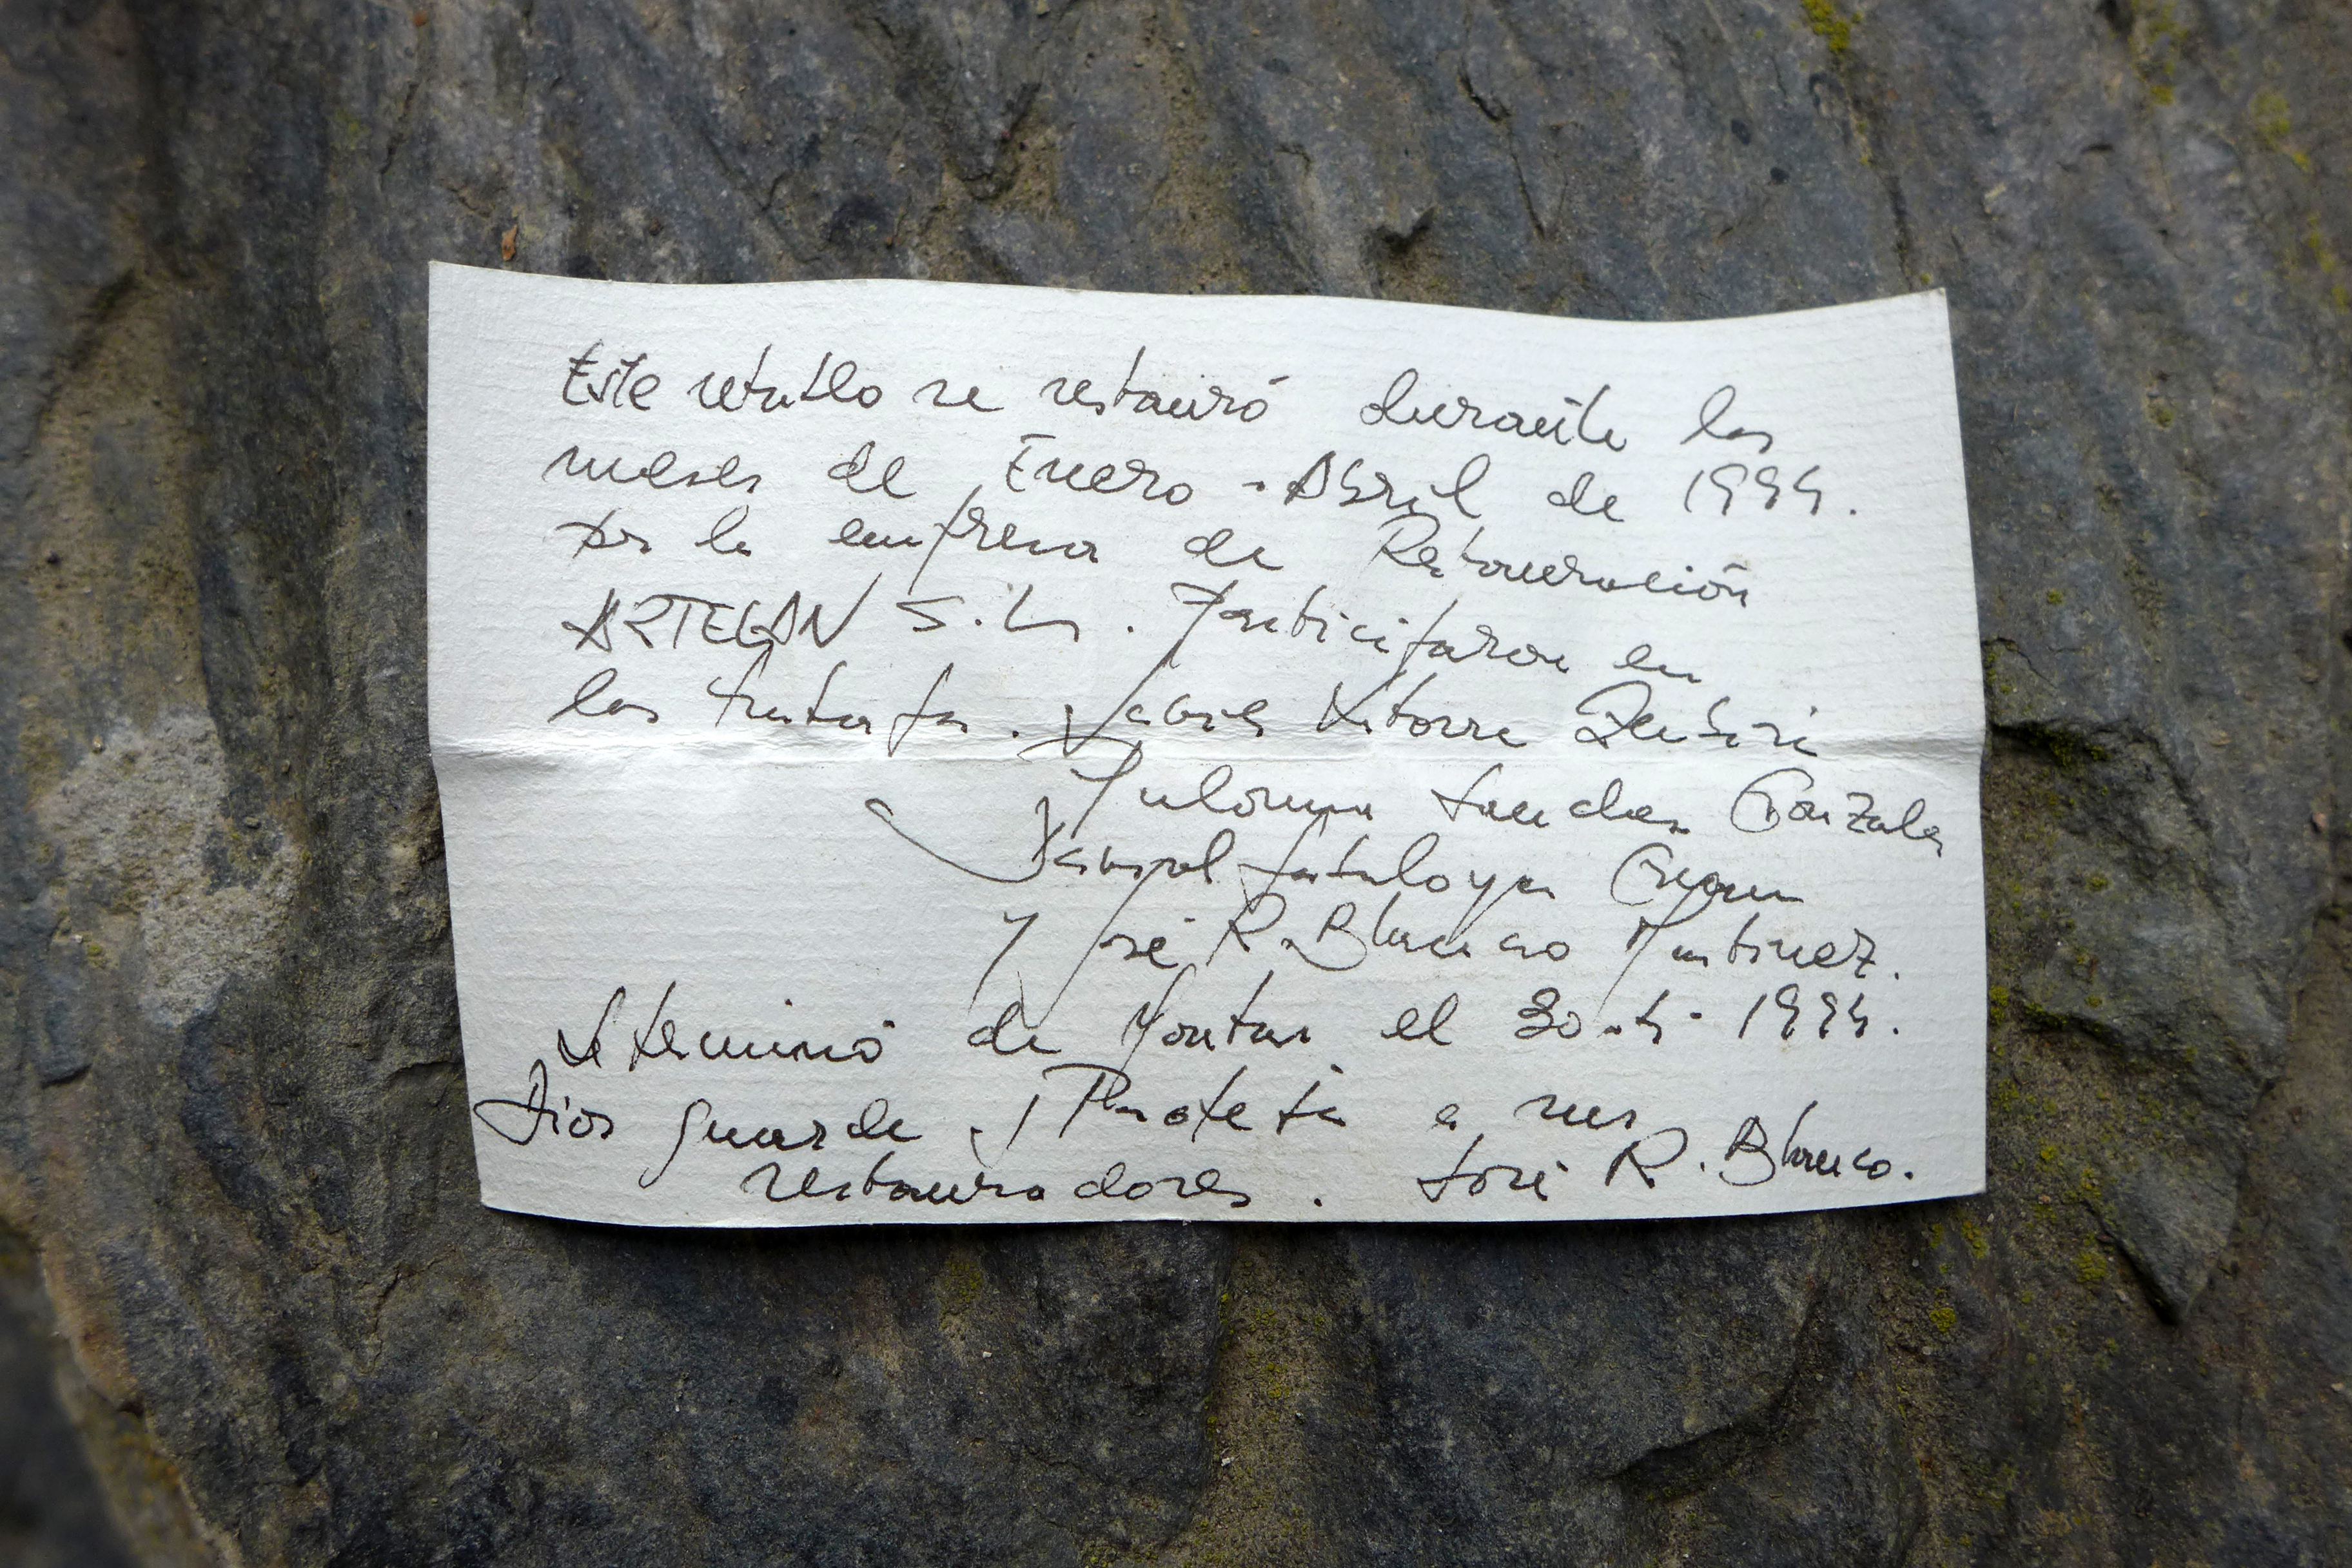 Este retablo se restauró durante los
meses de Enero - Abril de 1994.
por la empresa de Restauración
ARTELAN S.L. Participaron en
los trabajos. Javier Latorre Zubiri
Paloma Sanchez Gonzalez
y José R. Blanco Martinez.
Se terminó de Montar el 30-4-1994.
Dios guarde y Proteja a sus
restauradores. José R. Blanco.